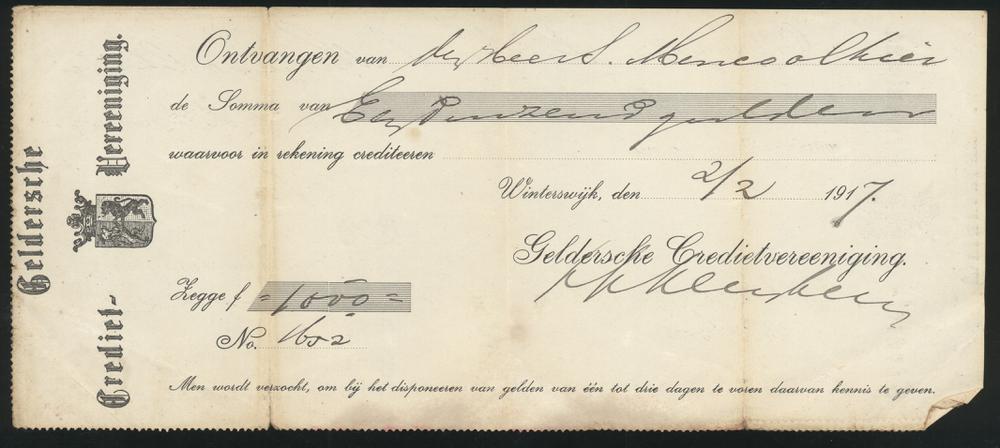 Geldersche
Crediet-Vereeniging.
Ontvangen van den Heer S. Menco alhier
de Somma van Een Duizend gulden
waarvoor in rekening crediteeren
Winterswijk, den 2/2 1917.
Geldersche Credietvereeniging.
Zegge f =1000=
No. 1652
Men wordt verzocht, om bij het disponeeren van gelden van één tot drie dagen te voren daarvan kennis te geven.